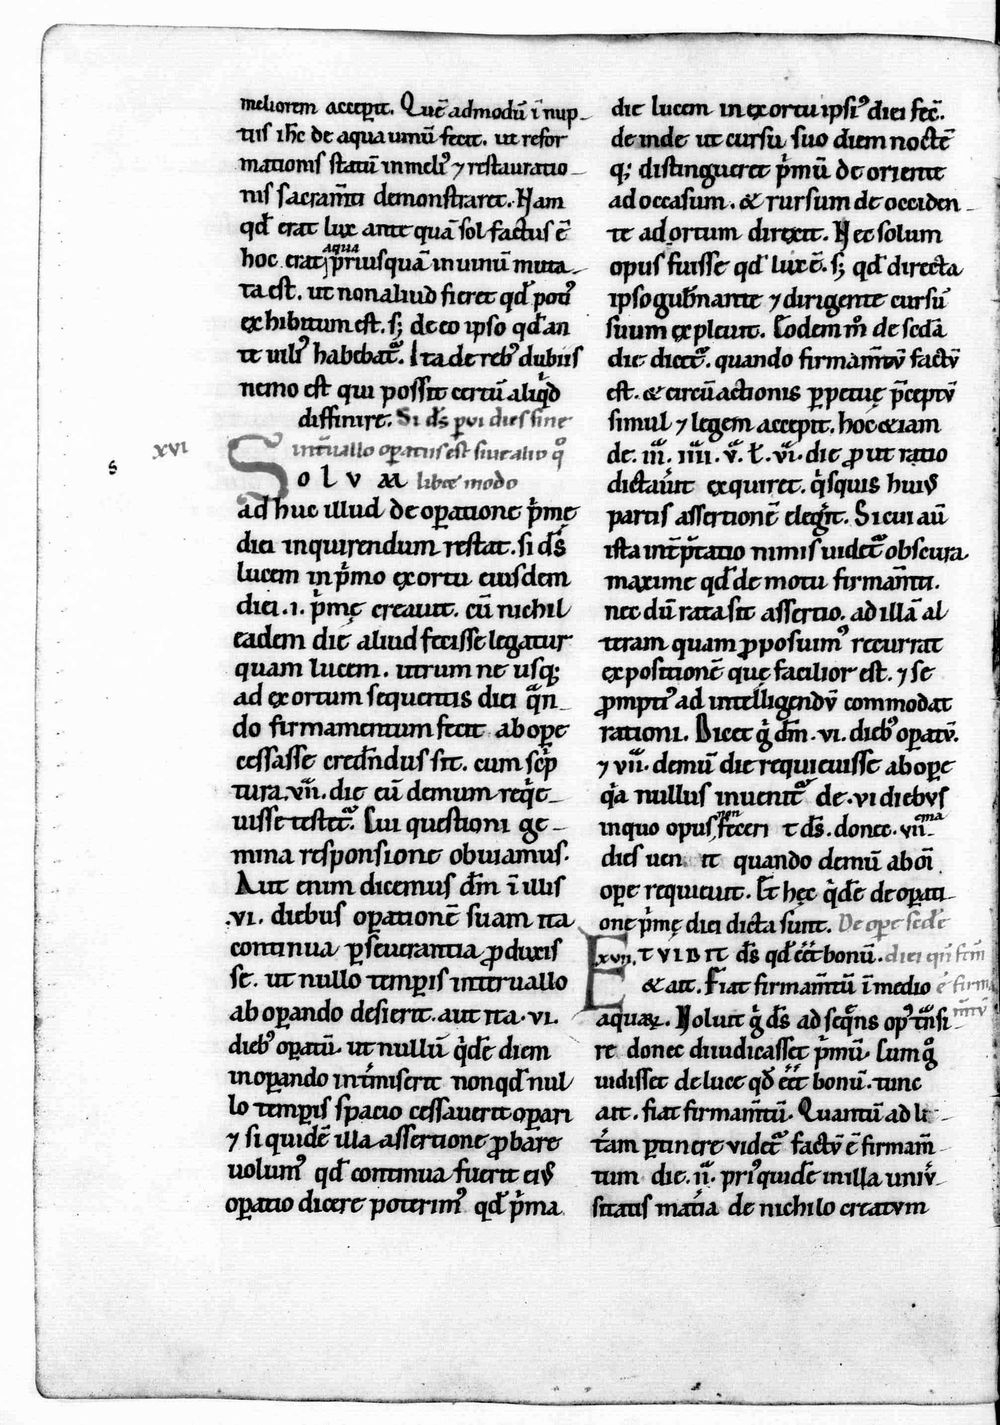 meliorem accepit. Quē admodū ī nup-
tiis ih̄c de aqua uinū fecit. ut refor
mationis statū in meliꝰ ⁊ restauratio-
nis sacram̄ti demonstraret. Nam
qđ erat lux ante quā sol factus ē
hoc erat aqua p̄riusquā in uinū muta-
ta est. ut non aliud fieret qđ potiꝰ
exhibitum est. sꝫ de eo ipso qđ an
te uilꝰ habebat᷑. Ita de rebꝰ dubiis
nemo est qui possit certū aliqͥd
diffinire. Si d̄s ꝑ vi dies sine
xvi int̄uallo oꝑatus est siue alio qͦ
S o l v m libet modo
ad huc illud de oꝑatione pͥmę
diei inquirendum restat. si d̄s
lucem in pͥmo exortu eiusdem
diei .i. pͥmę creauit. cū nichil
eadem die aliud fecisse legatur
quam lucem. utrum ne usqꝫ
ad exortum sequentis diei qᷓn-
do firmamentum fecit ab oꝑe
cessasse cred̄ndus sit. cum sc̄p
tura .vii. die eū demum reqͥe-
uisse testet᷑. Cui questioni ge-
mina responsione obuiamus.
Aut enim dicemus d̄m ī illis
.vi. diebus oꝑationē suam ita
continua ꝑseuerantia ꝓduxis
se. ut nullo temꝑis interuallo
ab oꝑando desierit. aut ita .vi.
diebꝰ oꝑatū. ut nullū qͥdē diem
inoꝑando int̄miserit non qđ nul
lo temꝑis spacio cessauerit oꝑari
⁊ si quidē illa assertione ꝓbare
uolumꝰ qđ continua fuerit eiꝰ
oꝑatio dicere poterimꝰ qđ pͥma
die lucem in exortu ipsiꝰ diei fec̄.
deinde ut cursu suo diem noctē
qꝫ distingueret pͥmū de oriente
ad occasum. & rursum de occiden-
te ad ortum direxit. Nec solum
opus fuisse qđ lux ē. sꝫ qđ directa
ipso gub̄nante ⁊ dirigente cursū
suum expleuit. Eodem m̊ de scd̄a
die dicet᷑. quando firmam̄tū factū
est. & circūactionis ꝑpetue p̄ceptū
simul ⁊ legem accepit. hoc etiam
de .iii. iiii. v. ł. vi. die ꝓut ratio
dictau̾it exquiret. qͥsquis huiꝰ
partis assertionē elegͥt. Si cui aū
ista int̄p̄tatio nimis uidet᷑ obscura
maxime qđ de motu firmam̄ti.
nec dū rata sit assertio. ad illā al
teram quam ꝓposuimꝰ recurrat
expositionē que facilior est. ⁊ se
ꝓmptiꝰ ad intelligendū commodat
rationi. Dicet gͥ d̄m .vi. diebꝰ oꝑatū.
⁊ vii. demū die requieuisse ab oꝑe
qͥa nullus inuenit᷑ de .vi diebus
in quo opus non fecerit d̄s. donec .viiͫᵃ
dies uenit quando demū ab oī
oꝑe requieuit. Et hęc qͥdē de oꝑati-
one pͥmę diei dicta sunt. De oꝑe scd̄e
xvii. ET VIDIT d̄s qđ eēt bonū. diei qn̄ fc̄m
& ait. Fiat firmam̄tū ī medio ē firm
aquaꝝ. Noluit gͥ d̄s ad seqn̄s opꝰ tn̄si- m̄tū
re donec diiudicasset pͥmū. Cum gͦ
uidisset de luce qđ eēt bonū. tunc
ait. fiat firmam̄tū. Quantū ad li-
tt̄am ꝑtinere videt᷑ factū ē firmam̄-
tum die .ii. priꝰ quidē in illa uniu̾-
sitatis mat̄ia de nichilo creatum